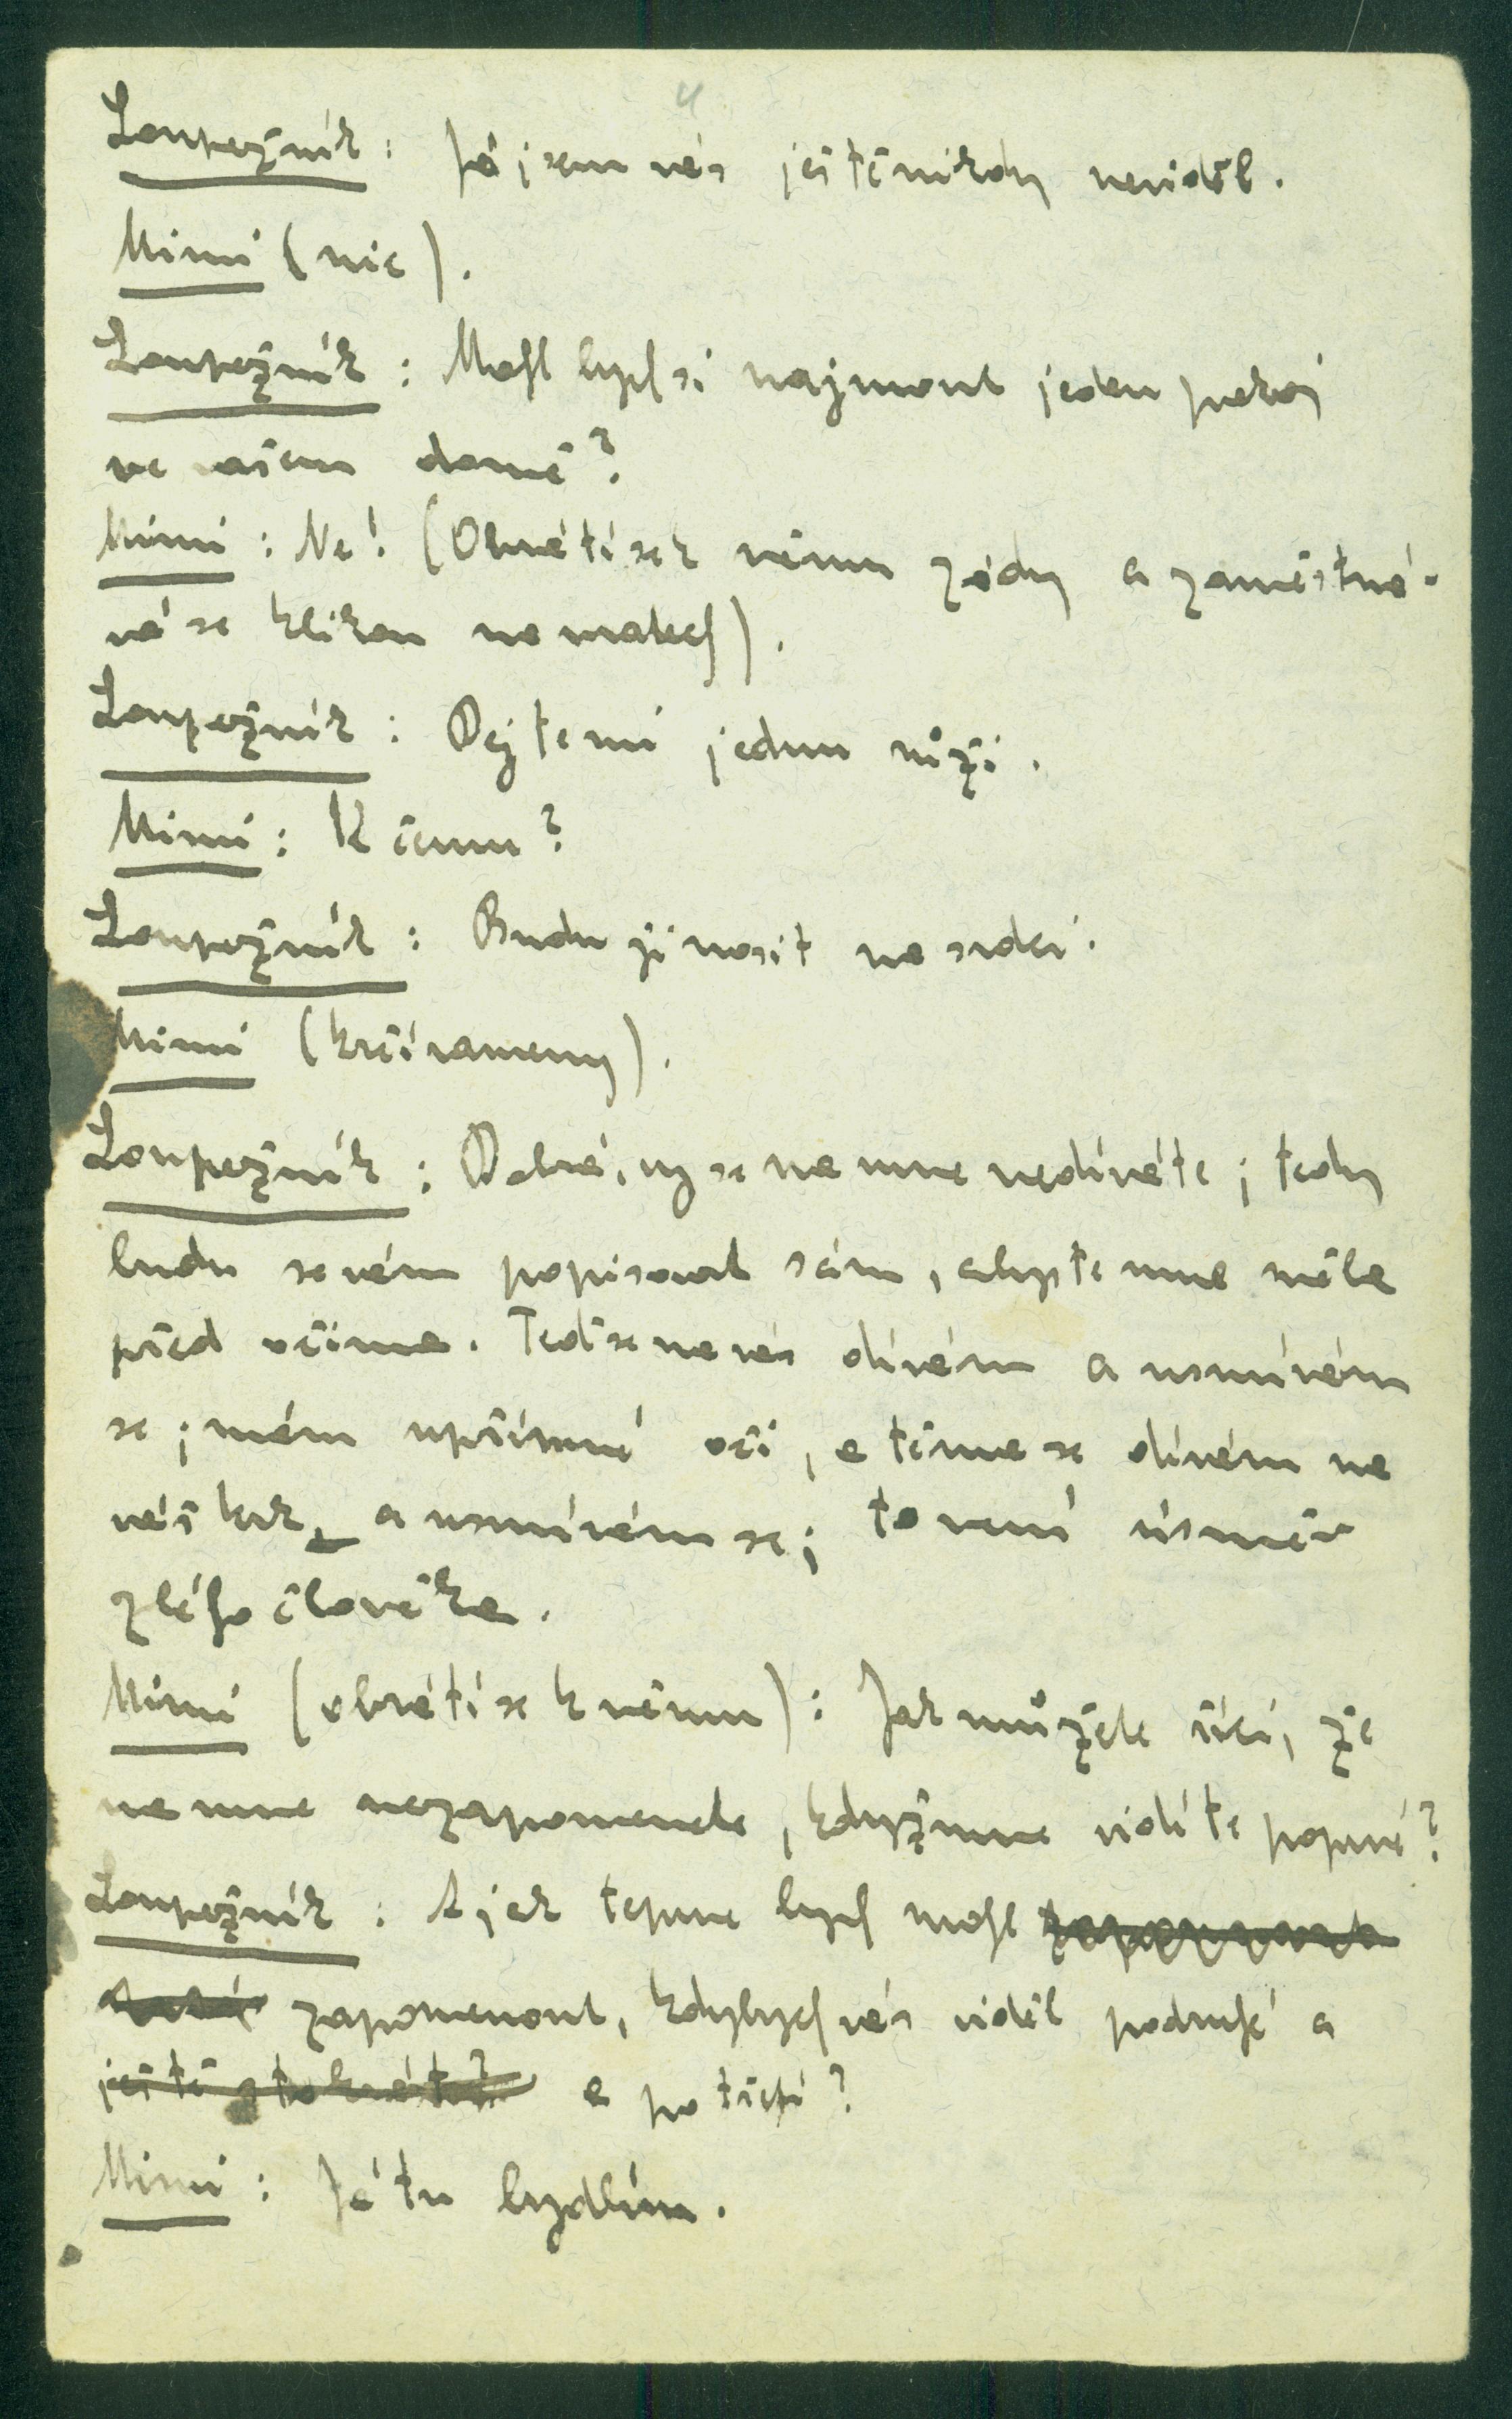 4
Loupežník: Já jsem vás ještě nikdy neviděl.
Mimi (nic).
Loupežník: Mohl bych si najmout jeden pokoj
ve vašem domě?
Mimi: Ne! (Obrátí se k němu zády a zaměstná-
vá se klikou na vratech).
Loupežník: Dejte mi jednu růži.
Mimi: K čemu?
Loupežník: Budu ji nosit na srdci.
Mimi (krčí rameny).
Loupežník: Dobrá, vy se na mne nedíváte; tedy
budu se vám popisovat sám, abyste mne měla
před očima. Teď se na vás dívám a usmívám
se; mám upřímné oči, a těma se dívám na
váš krk, a usmívám se; to není úsměv
zlého člověka.
Mimi (obrátí se k němu): Jak můžete říci, že
na mne nezapomenete, když mne vidíte poprvé?
Loupežník: A jak teprve bych mohl
zapomenout, kdybych vás viděl podruhé a
ještě stokrát? a po třetí?
Mimi: Já tu bydlím.